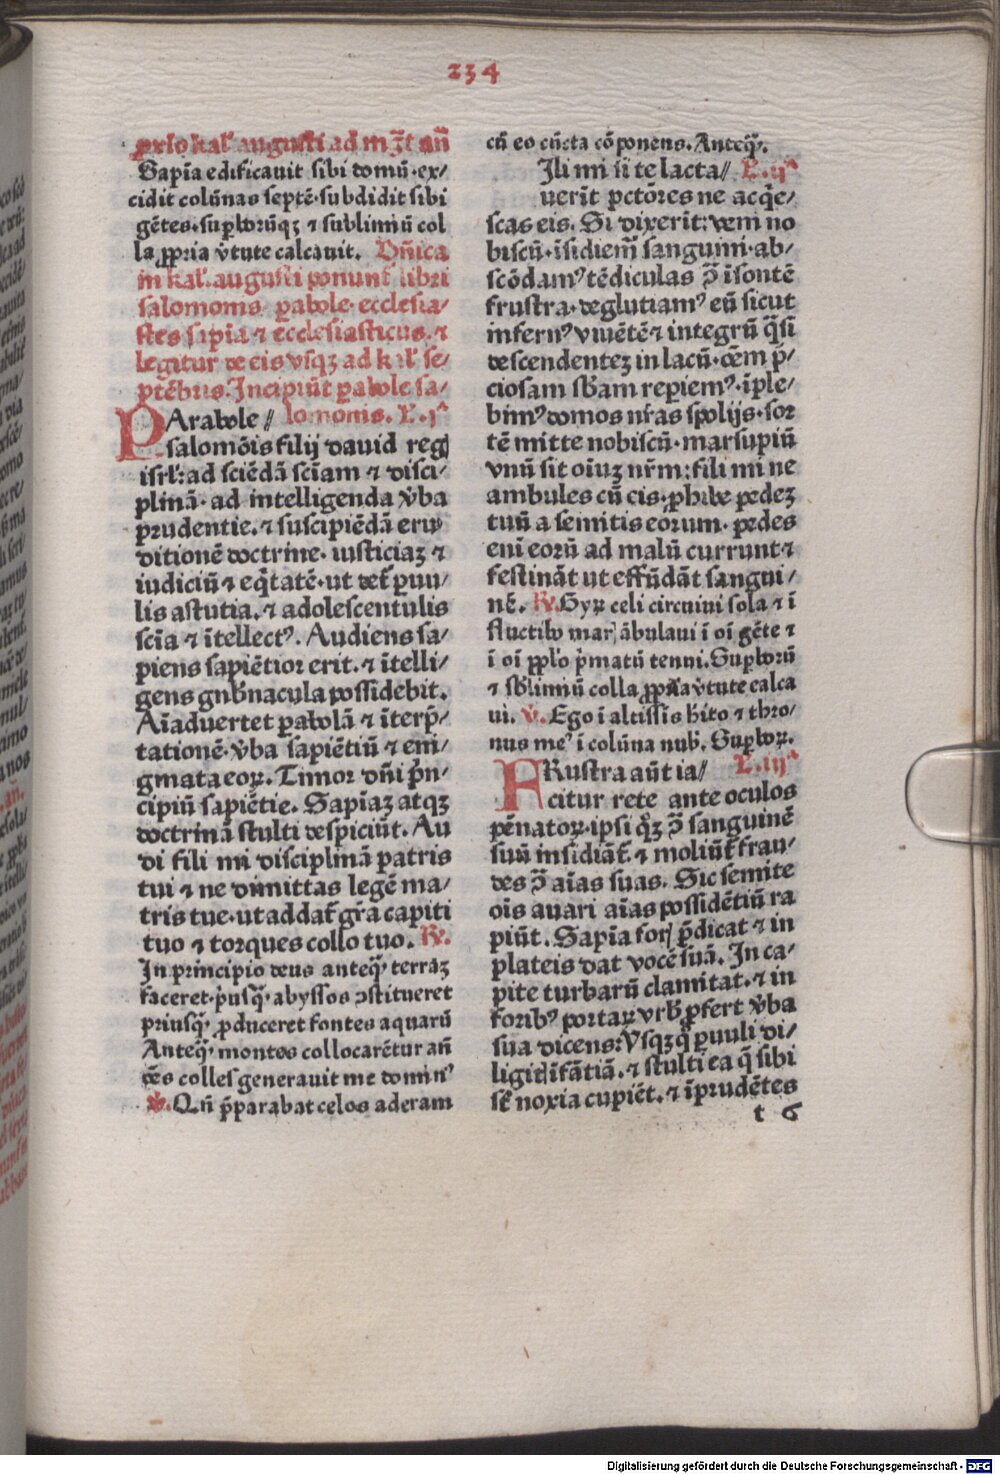 234
Sapīa edificauit sibi domū·ex/
cidit colūnas septē·subdidit sibi
gētes·suꝑboꝝqꝫ ⁊ sublimiū col
la ꝓpria v̓tute calcauit. Dn̄ica
in kal̓. augusti ponunt̄ libri
salomonis ꝑabole·ecclesia/
stes sapīa ⁊ ecclesiasticus. ⁊
legitur de eis vsqꝫ ad kal̓ se/
ptēbris. Incipiūt ꝑabole sa/
PArabole // lomonis. L̓.jᵃ
salomōis filij dauid regꝭ
isrl̓: ad sciēdā sciam ⁊ disci/
plinā·ad intelligenda v̓ba
prudentie.⁊ suscipiēdā eru
ditionē doctrine·iusticiaꝫ ⁊
iudiciū ⁊ eq̄tatē·ut det̄ ꝑuu/
lis astutia.⁊ adolescentulis
scīa ⁊ ītellectꝰ. Audiens sa/
piens sapiētior erit.⁊ ītelli/
gens gub̓nacula possidebit.
Aīaduertet ꝑabolā ⁊ īterp̄/
tationē·v̓ba sapiētiū ⁊ eni/
gmata eoꝝ. Timor dn̄i p̄n/
cipiū sapiētie. Sapīaꝫ atqꝫ
doctrinā stulti despiciūt. Au
di fili mi disciplinā patris
tui ⁊ ne dimittas legē ma/
tris tue·ut addat̄ gr̄a capiti
tuo ⁊ torques collo tuo. R̷.
In principio deus anteq̄ꝫ terraꝫ
faceret·p̓usq̄ꝫ abyssos ↄstitueret
priusq̄ꝫ ꝓduceret fontes aquarū
Anteq̄ꝫ montes collocarētur an̄
ōēs colles generauit me dominꝰ
V̷. Qn̄ p̄parabat celos aderam
cū eo cūcta cōponens. Anteq̄ꝫ.
Ili mi si te lacta// L̓.ijᵃ
uerīt pctōres ne acq̓e/
scas eis. Si dixerīt: veni no
biscū·īsidiem̄ sanguini·ab/
scōdamꝰ tēdiculas ꝯ̄ īsontē
frustra·deglutiamꝰ eū sicut
infernꝰ viuētē ⁊ integrū q̄si
descendenteꝫ in lacū·oēm p̄/
ciosam sb̄am repiemꝰ·īple/
bimꝰ domos nr̄as spolijs·sor
tē mitte nobiscū·marsupiū
vnū sit oīuꝫ nr̄m: fili mi ne
ambules cū eis·ꝓhibe pedeꝫ
tuū a semitis eorum·pedes
enī eorū ad malū currunt ⁊
festināt ut effūdāt sangui/
nē. R̷. Gyꝝ celi circuiui sola ⁊ ī
fluctibꝰ marꝭ ābulaui ī oī gēte ⁊
ī oī ppl̓o p̓matū tenui. Suꝑborū
⁊ sb̓limiū colla ꝓpria v̓tute calca
ui. V̷. Ego ī altissīs hīto ⁊ thro/
nus meꝰ ī colūna nub̓. Suꝑboꝝ.
FRustra aūt ia// L̓.iijᵃ
citur rete ante oculos
pēnatoꝝ·ipsi q̓qꝫ ꝯ̄ sanguinē
suū insidiāt̄·⁊ moliūt̄ frau/
des ꝯ̄ aīas suas. Sic semite
oīs auari aīas possidētiū ra
piūt. Sapīa forꝭ p̄dicat ⁊ in
plateis dat vocē suā. In ca/
pite turbarū clamitat·⁊ in
foribꝰ portaꝝ vrb̓ ꝓfert v̓ba
sua dicens: Vsqꝫq̄ ꝑuuli di/
ligitis īfātiā·⁊ stulti ea q̄ sibi
st̄ noxia cupiēt·⁊ īprudētes
t 6
Digitalisierung gefördert durch die Deutsche Forschungsgemeinschaft - DFG